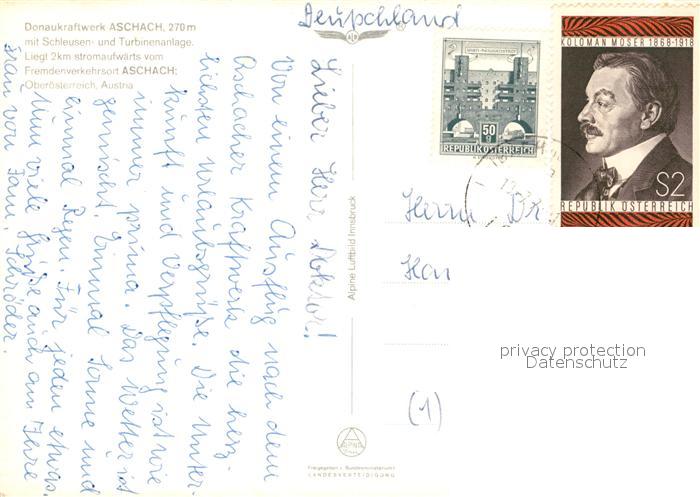 Donaukraftwerk ASCHACH, 270 m
mit Schleusen- und Turbinenanlage.
Liegt 2km stromaufwärts vom
Fremdenverkehrsort ASCHACH;
Oberösterreich, Austria
Deutschland
Lieber Herr Doktor!
Von einem Ausflug nach dem
Aschacher Kraftwerk die herz-
lichsten Urlaubsgrüße. Die Unter-
kunft und Verpflegung ist wie
immer prima. Das Wetter ist
gemischt. Einmal Sonne und
einmal Regen. Für jeden etwas.
Nun viele Grüße auch an Ihre
Frau von Fam. Schröder.
Alpine Luftbild Innsbruck
WIEN-
50
g
REPUBLIK ÖSTERREICH
KOLOMAN MOSER 1868-1918
S2
REPUBLIK ÖSTERREICH
Herrn Dr
(1)
privacy protection
Datenschutz
Freigegeben v. Bundesministerium f.
LANDESVERTEIDIGUNG